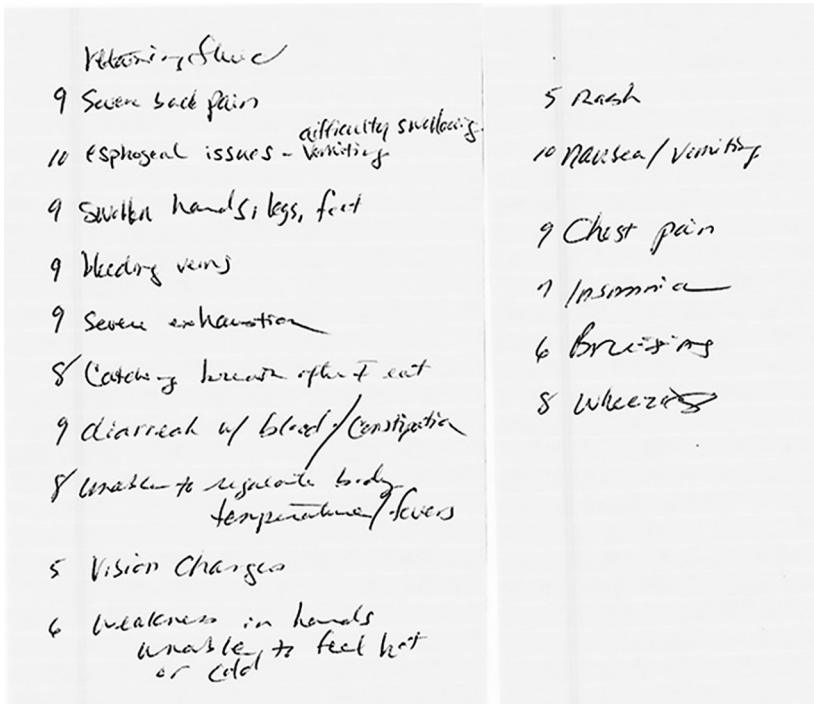 Retaining fluid
9 Severe back pain
difficulty swallowing
10 esphogeal issues - Vomiting
9 Swollen hands, legs, feet
9 bleeding veins
9 Severe exhaustion
8 Catching breath after I eat
9 diarreah w/ blood/Constipation
8 unable to regulate body
temperature/fevers
5 Vision Changes
6 weakness in hands
unable to feel hot
or cold
5 Rash
10 nausea/vomiting
9 Chest pain
7 Insomnia
6 Bruising
8 wheezing